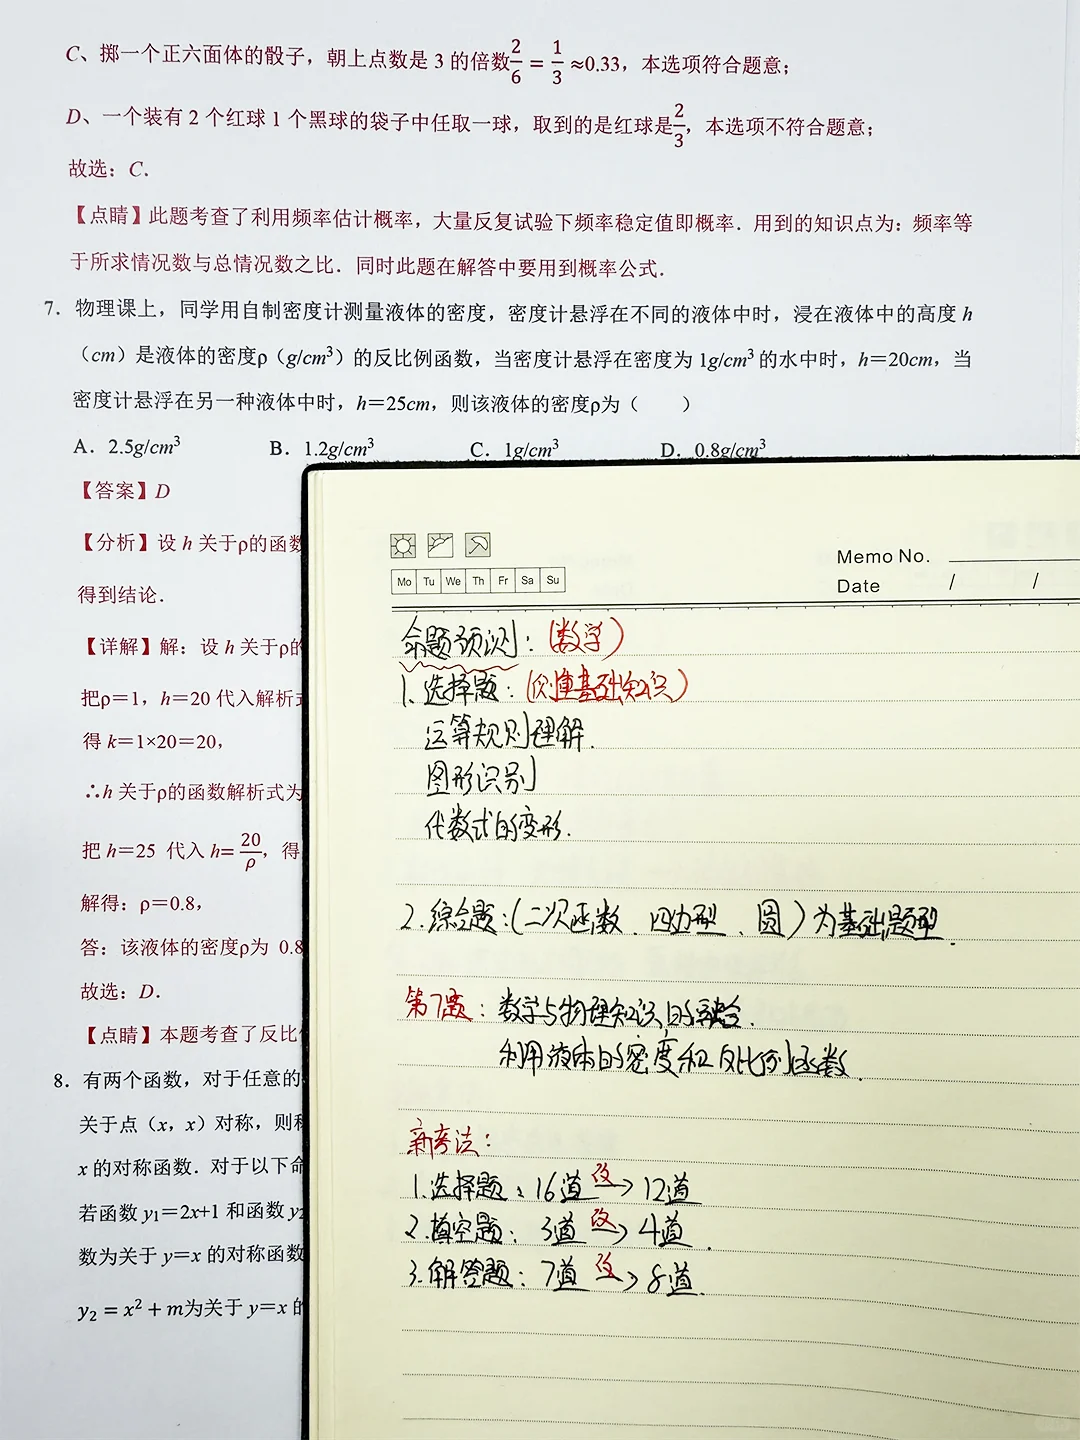 C、掷一个正六面体的骰子，朝上点数是 3 的倍数2/6＝1/3≈0.33，本选项符合题意；
D、一个装有 2 个红球 1 个黑球的袋子中任取一球，取到的是红球是2/3，本选项不符合题意；
故选：C．
【点睛】此题考查了利用频率估计概率，大量反复试验下频率稳定值即概率．用到的知识点为：频率等
于所求情况数与总情况数之比．同时此题在解答中要用到概率公式．
7．物理课上，同学用自制密度计测量液体的密度，密度计悬浮在不同的液体中时，浸在液体中的高度 h
（cm）是液体的密度ρ（g/cm³）的反比例函数，当密度计悬浮在密度为 1g/cm³ 的水中时，h＝20cm，当
密度计悬浮在另一种液体中时，h＝25cm，则该液体的密度ρ为（　　）
A．2.5g/cm³ B．1.2g/cm³ C．1g/cm³ D．0.8g/cm³
【答案】D
【分析】设 h 关于ρ的函数
得到结论．
【详解】解：设 h 关于ρ的
把ρ＝1，h＝20 代入解析式
得 k＝1×20＝20，
∴h 关于ρ的函数解析式为
把 h＝25 代入 h=20/ρ，得
解得：ρ＝0.8，
答：该液体的密度ρ为 0.8
故选：D．
【点睛】本题考查了反比
8．有两个函数，对于任意的
关于点（x，x）对称，则称
x 的对称函数．对于以下命
若函数 y₁＝2x+1 和函数 y₂
数为关于 y＝x 的对称函数
y₂ = x² + m为关于 y＝x 的
Memo No.
Mo Tu We Th Fr Sa Su
Date / /
命题预测：（数学）
1.选择题：（侧重基础知识）
运算规则理解.
图形识别
代数式的变形.
2.综合题：（二次函数、四边型、圆）为基础题型.
第7题：数学与物理知识的融合.
利用液体的密度和反比例函数.
新考法：
1.选择题：16道 改→ 12道
2.填空题：3道 改→ 4道.
3.解答题：7道 改→ 8道.